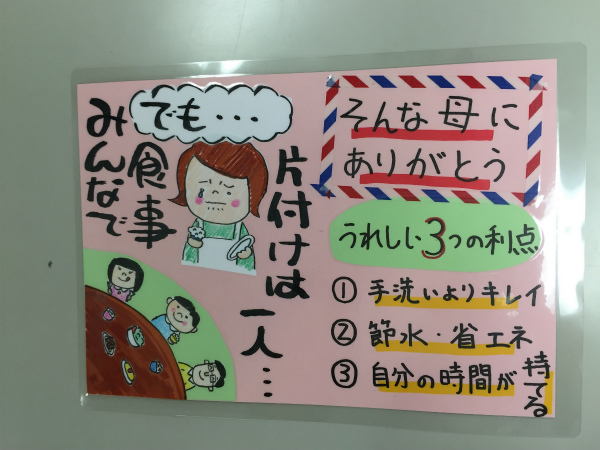 みんなで
食事
でも・・・
片付けは
一人・・・
そんな母に
ありがとう
うれしい3つの利点
① 手洗いよりキレイ
② 節水・省エネ
③ 自分の時間が持てる